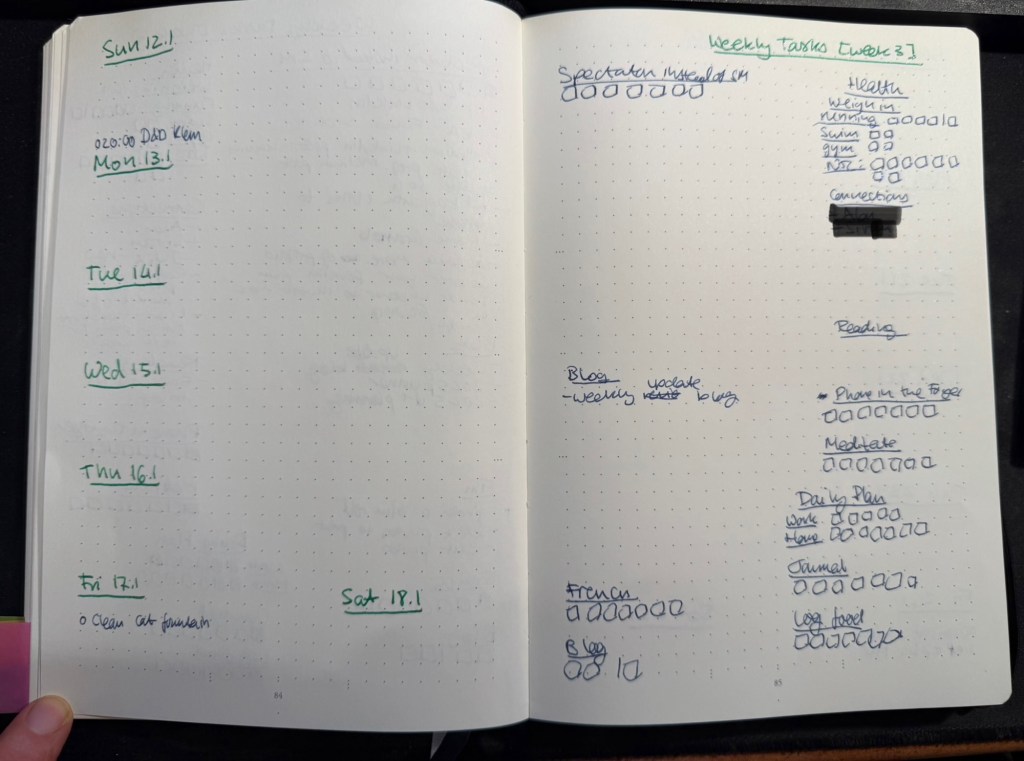 Sun 12.1
o 20:00 D&D Klem
Mon 13.1
Tue 14.1
Wed 15.1
Thu 16.1
Fri 17.1
o Clean cat fountain
Sat 18.1
84
Weekly Tasks [week 3]
Spectator instead of SM
□ □ □ □ □ □ □
Health
Weigh in
running □ □ □ □ | □
Swim □ □
gym □ □
□ □ □ □ □ □
□ □
Connections
Reading
Blog
- weekly update blog
- Phone in the Foyer
□ □ □ □ □ □ □
Meditate
□ □ □ □ □ □ □
Daily Plan
Work □ □ □ □ □
Home □ □ □ □ □ □ □
Journal
□ □ □ □ □ □ □
French
□ □ □ □ □ □ □
Log food
□ □ □ □ □ □ □
Blog
□ □ | □
85